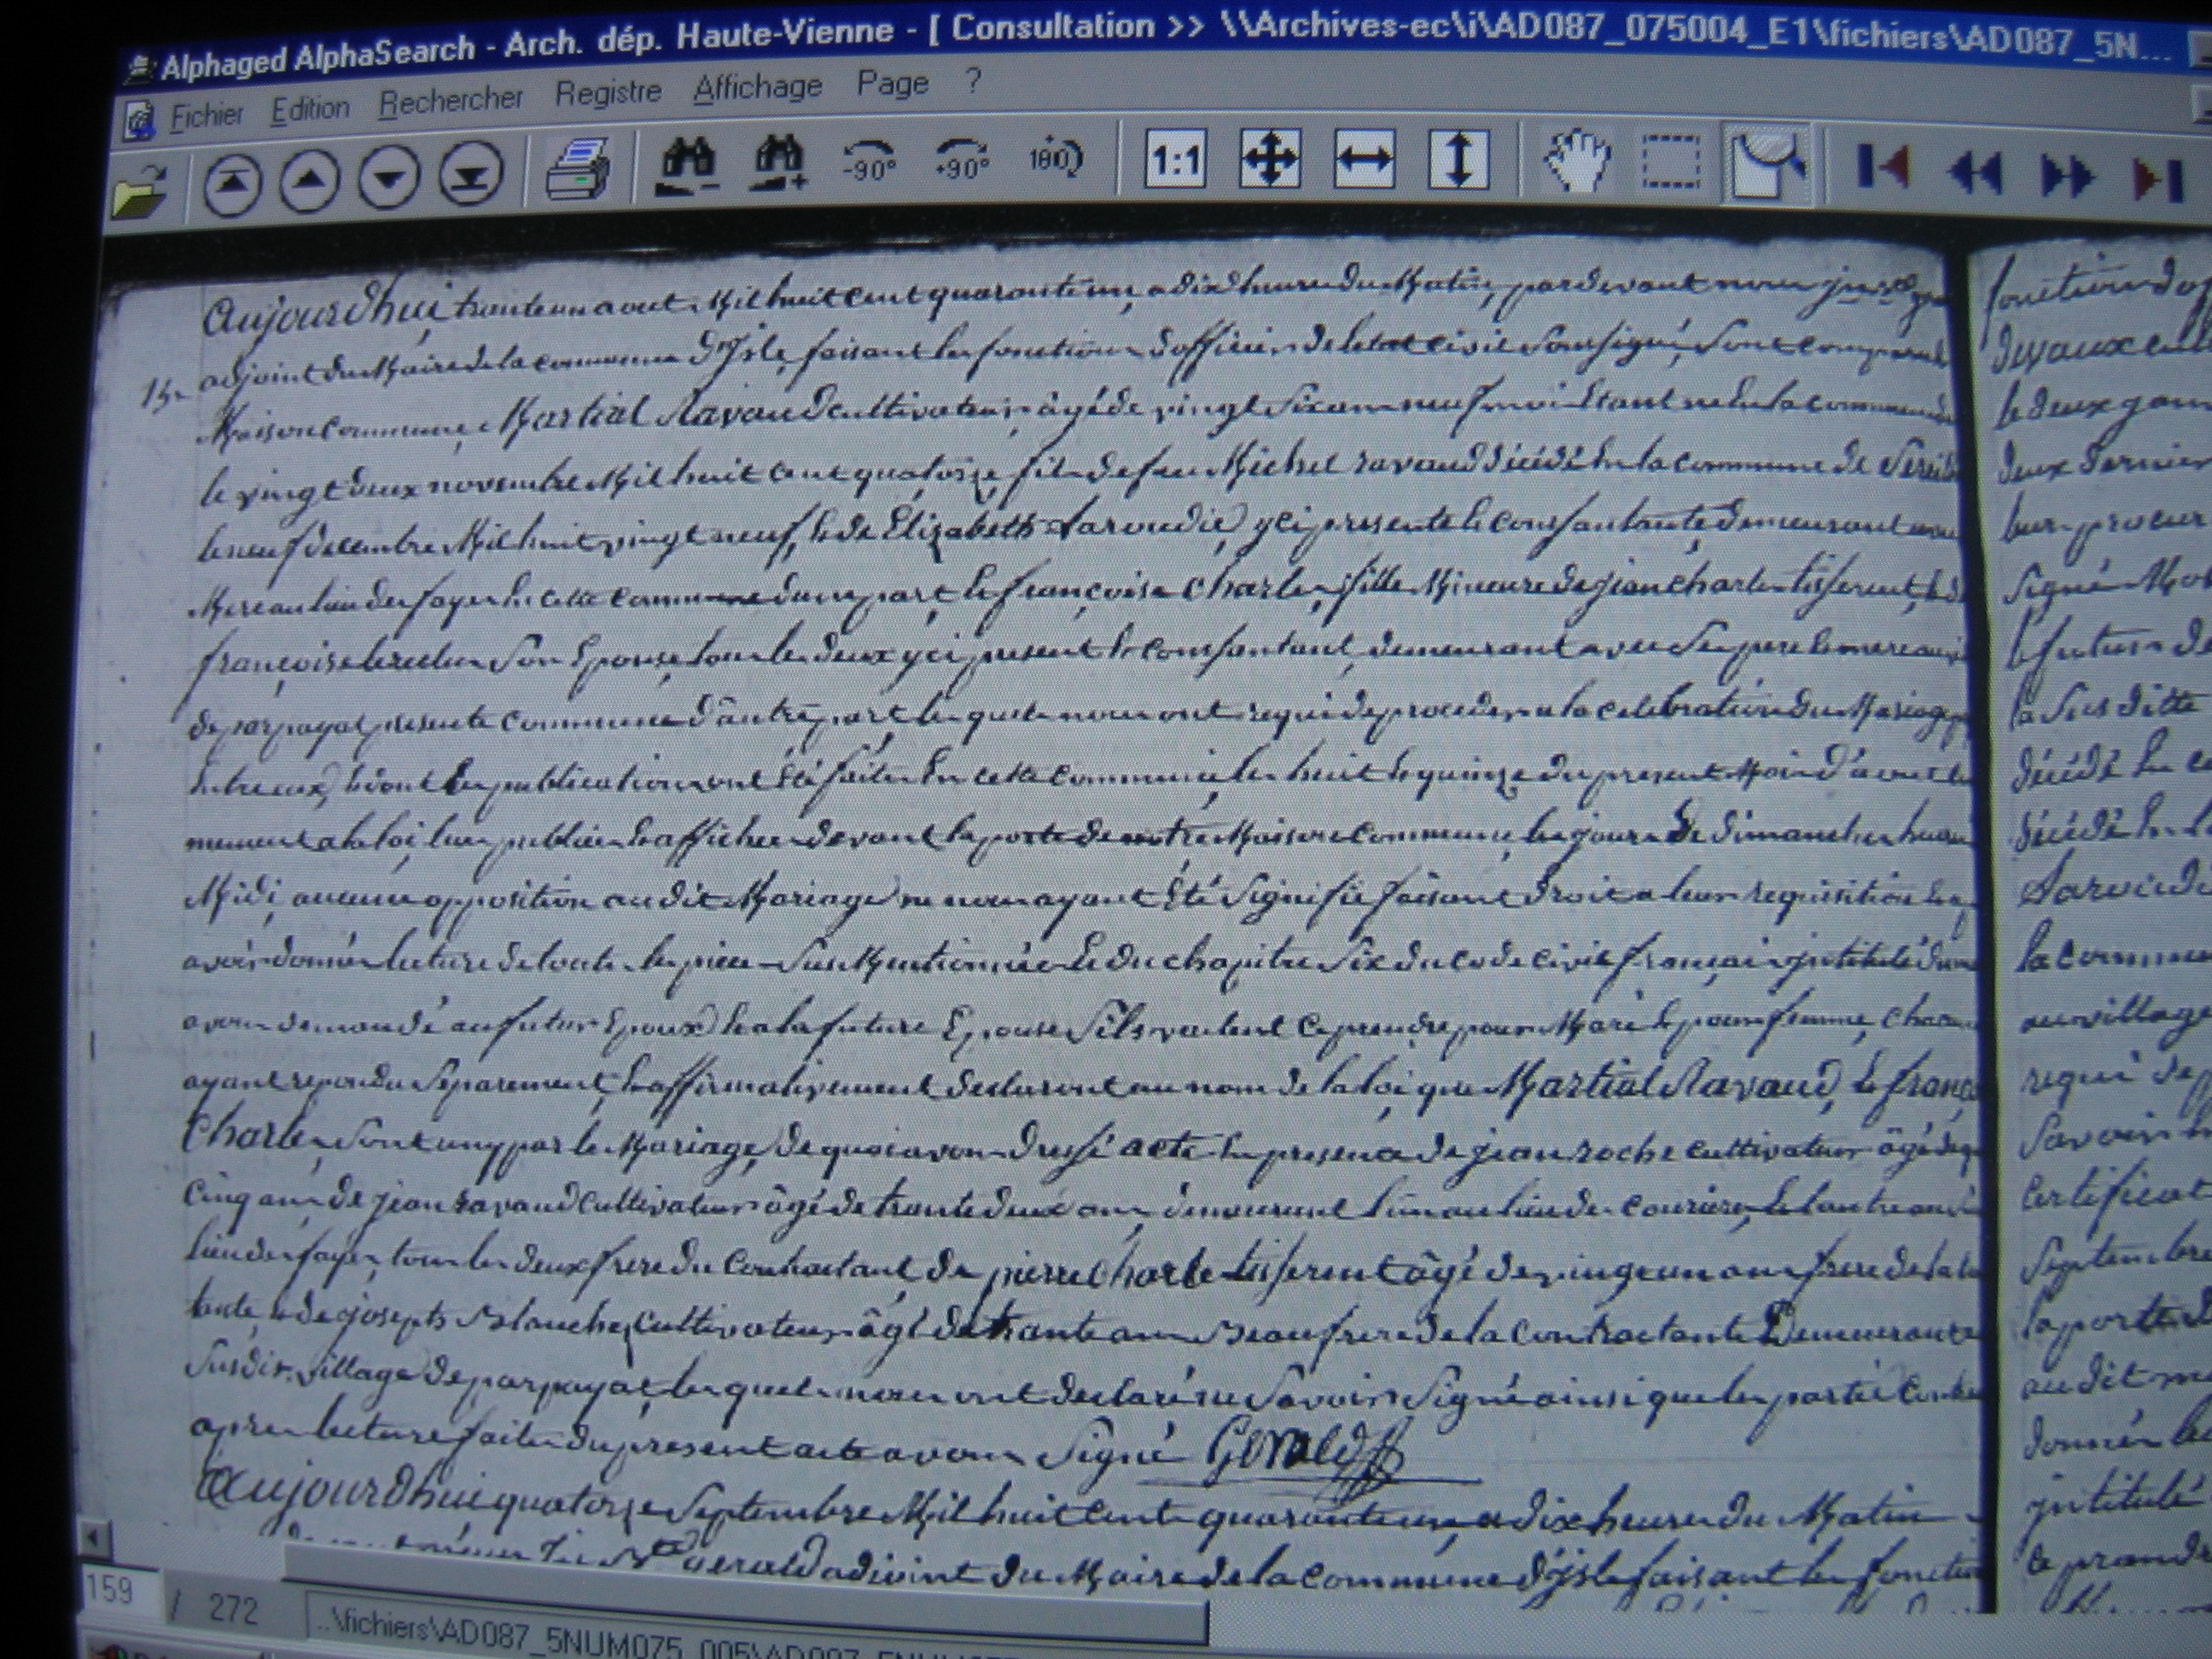 Alphaged AlphaSearch - Arch. dép. Haute-Vienne - [ Consultation >> \\Archives-ec\i\AD087_075004_E1\fichiers\AD087_5N...
Fichier Edition Rechercher Registre Affichage Page ?
-90° +90° 180 1:1
Aujourdhui trente un aout Mil huit cent quarante un, a dix heures du Matin, pardevant nous
adjoint du Maire de la commune d'Isle, faisant les fonctions d'officier de letat civil Soussigné, Sont comparus
15
Maison commune, Martial Ravaud cultivateur, âgé de vingt Six ans neuf mois Etant né en la commune
le vingt deux novembre Mil huit cent quatorze fils de feu Michel ravaud décédé En la commune de
le neuf decembre Mil huit vingt neuf, & de Elizabeth Laroudie, y ci presente & consantante, demeurant avec
Mere au lieu des fayes En cette commune d'une part, & françoise Charles, fille Mineure de jean charles tisserent, & de
françoise Son Epouse, tous les deux y ci present & consantant, demeurant avec Ses pere & mere au
de parpayat presente commune d'autre part, les quels nous ont requi de proceder a la celebration du Mariage
Entre eux, & dont les publications ont Eté faites En cette commune, les huit & quinze du present Mois d'aout
mement a la loi, lues publiées & affichées devant la porte de notre Maison commune, les jours de dimanches heure
Midi, aucune opposition au dit Mariage ne nous ayant Eté Signifié faisant droit a leur requisition &
avoir donnés lecture de toutes les pieces Sus Mentionnées & du chapitre Six du code civil français intitulé du
avons demandé au futur Epoux & a la future Epouse S'ils veulent ce prendre pour Mari & pour femme, chacun
ayant repondu Separement & affirmativement declarons au nom de la loi que Martial Ravaud, & franç
Charles, Sont uny par le Mariage, de quoi avons dressé acte En presence de jean roche cultivateur âgé de
Cinq ans, de jean ravaud cultivateur âgé de trante deux ans, demeurant l'un au lieu de & l'autre au
lieu des fayes, tous les deux frere du contractant, de pierre Charle tisserent âgé de vingt un ans frere de la
tante, & de joseph Blanche, cultivateur âgé de trante ans Beau frere de la contractante Demeurant
Susdit village de parpayat, les quels nous ont declaré ne Savoir Signé ainsi que les parties
apres lecture faite du present acte avons Signé Gerald
Aujourdhui quatorze Septembre Mil huit cent quarante un, a dix heures du Matin
Gerald adjoint du Maire de la commune d'isle faisant les fonction
fonction
devaux
le deux
deux dernier
leur
Signé
le futur de
la Sus ditte
décédé En
décédé En
Laroudi
la commune
au village
requi de
Savoir
certificat
Septembre
la porte
au dit
donnés
intitulé
ce prendre
159 / 272 ..\fichiers\AD087_5NUM075_005\AD087_5NUM